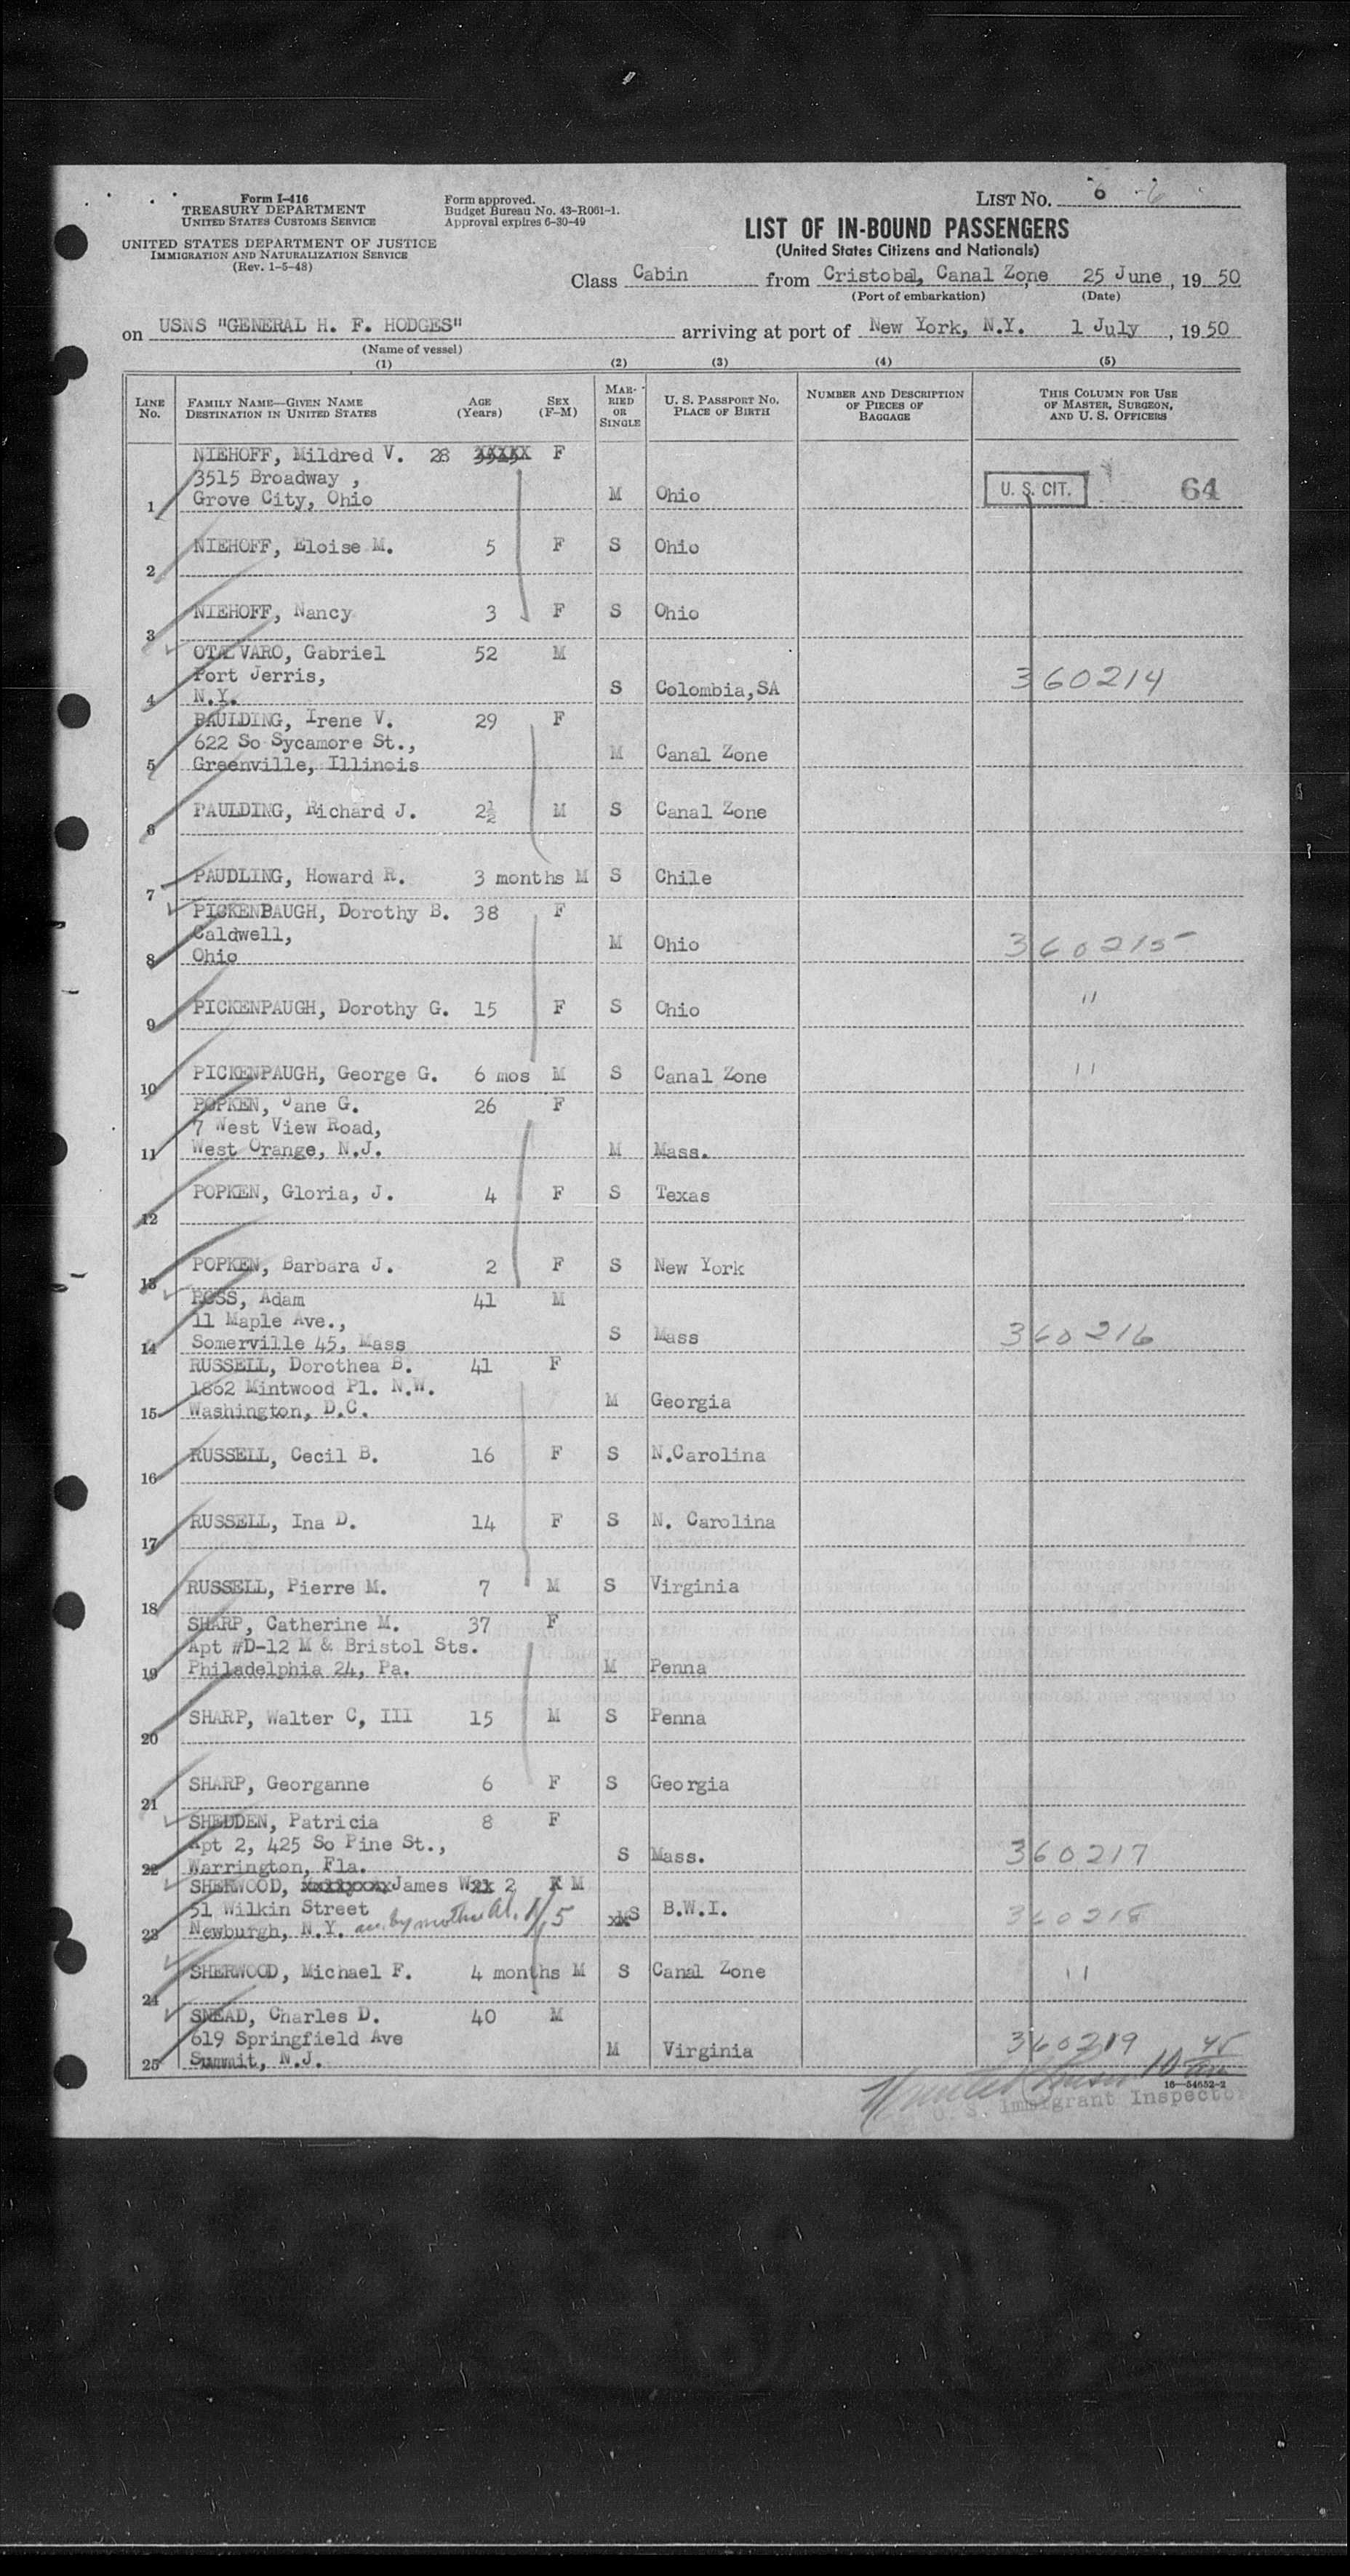 Form I-416
TREASURY DEPARTMENT
UNITED STATES CUSTOMS SERVICE
UNITED STATES DEPARTMENT OF JUSTICE
IMMIGRATION AND NATURALIZATION SERVICE
(Rev. 1-5-48)
Form approved.
Budget Bureau No. 43-R061-1.
Approval expires 6-30-49
LIST NO. 6 6
LIST OF IN-BOUND PASSENGERS
(United States Citizens and Nationals)
Class Cabin from Cristobal, Canal Zone 25 June, 19 50
(Port of embarkation) (Date)
on USNS "GENERAL H. F. HODGES" arriving at port of New York, N.Y. 1 July, 19 50
(Name of vessel)
(1) (2) (3) (4) (5)
LINE NO. FAMILY NAME—GIVEN NAME DESTINATION IN UNITED STATES AGE (Years) SEX (F-M) MARRIED OR SINGLE U. S. PASSPORT NO. PLACE OF BIRTH NUMBER AND DESCRIPTION OF PIECES OF BAGGAGE THIS COLUMN FOR USE OF MASTER, SURGEON, AND U. S. OFFICERS
NIEHOFF, Mildred V. 28 F
3515 Broadway ,
1 Grove City, Ohio M Ohio U. S. CIT. 64
NIEHOFF, Eloise M. 5 F S Ohio
2
NIEHOFF, Nancy 3 F S Ohio
3
OTALVARO, Gabriel 52 M
Port Jerris,
4 N.Y. S Colombia,SA 360214
PAULDING, Irene V. 29 F
622 So Sycamore St.,
5 Greenville, Illinois M Canal Zone
PAULDING, Richard J. 2½ M S Canal Zone
6
PAUDLING, Howard R. 3 months M S Chile
7
PICKENBAUGH, Dorothy B. 38 F
Caldwell,
8 Ohio M Ohio 360215
PICKENPAUGH, Dorothy G. 15 F S Ohio "
9
PICKENPAUGH, George G. 6 mos M S Canal Zone "
10
POPKEN, Jane G. 26 F
7 West View Road,
11 West Orange, N.J. M Mass.
POPKEN, Gloria, J. 4 F S Texas
12
POPKEN, Barbara J. 2 F S New York
13
ROSS, Adam 41 M
11 Maple Ave.,
14 Somerville 45, Mass S Mass 360216
RUSSELL, Dorothea B. 41 F
1862 Mintwood Pl. N.W.
15 Washington, D.C. M Georgia
RUSSELL, Cecil B. 16 F S N.Carolina
16
RUSSELL, Ina D. 14 F S N. Carolina
17
RUSSELL, Pierre M. 7 M S Virginia
18
SHARP, Catherine M. 37 F
Apt #D-12 M & Bristol Sts.
19 Philadelphia 24, Pa. M Penna
SHARP, Walter C, III 15 M S Penna
20
SHARP, Georganne 6 F S Georgia
21
SHEDDEN, Patricia 8 F
Apt 2, 425 So Pine St.,
22 Warrington, Fla. S Mass. 360217
SHERWOOD, James W 2 M
51 Wilkin Street
23 Newburgh, N.Y. S B.W.I. 360218
SHERWOOD, Michael F. 4 months M S Canal Zone "
24
SNEAD, Charles D. 40 M
619 Springfield Ave
25 Summit, N.J. M Virginia 360219
16—54652-2
U. S. Immigrant Inspector